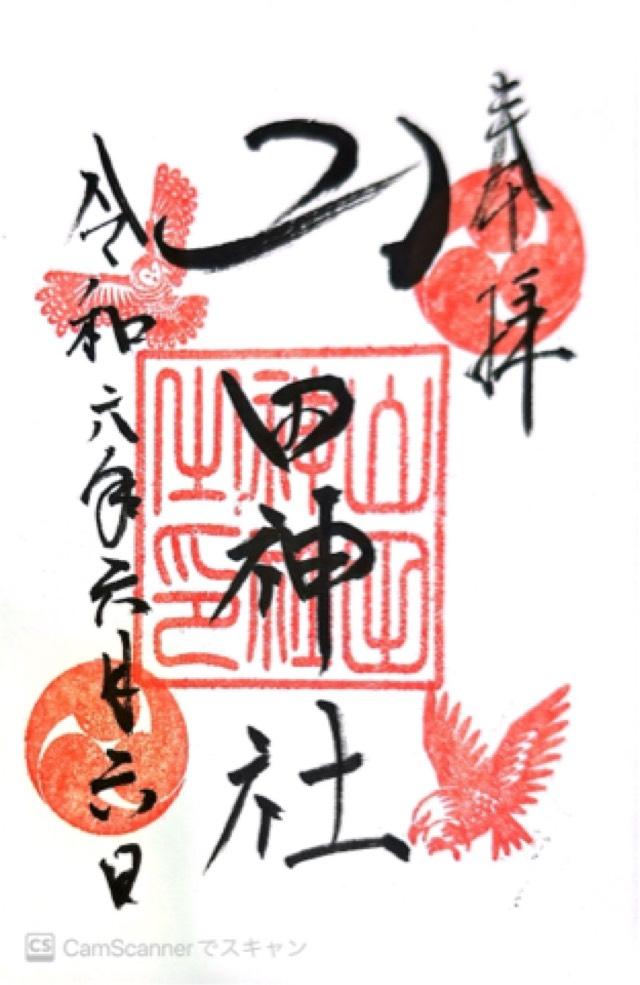 奉拝
田神社
令和六年六月六日
神社
之印
CS CamScannerでスキャン